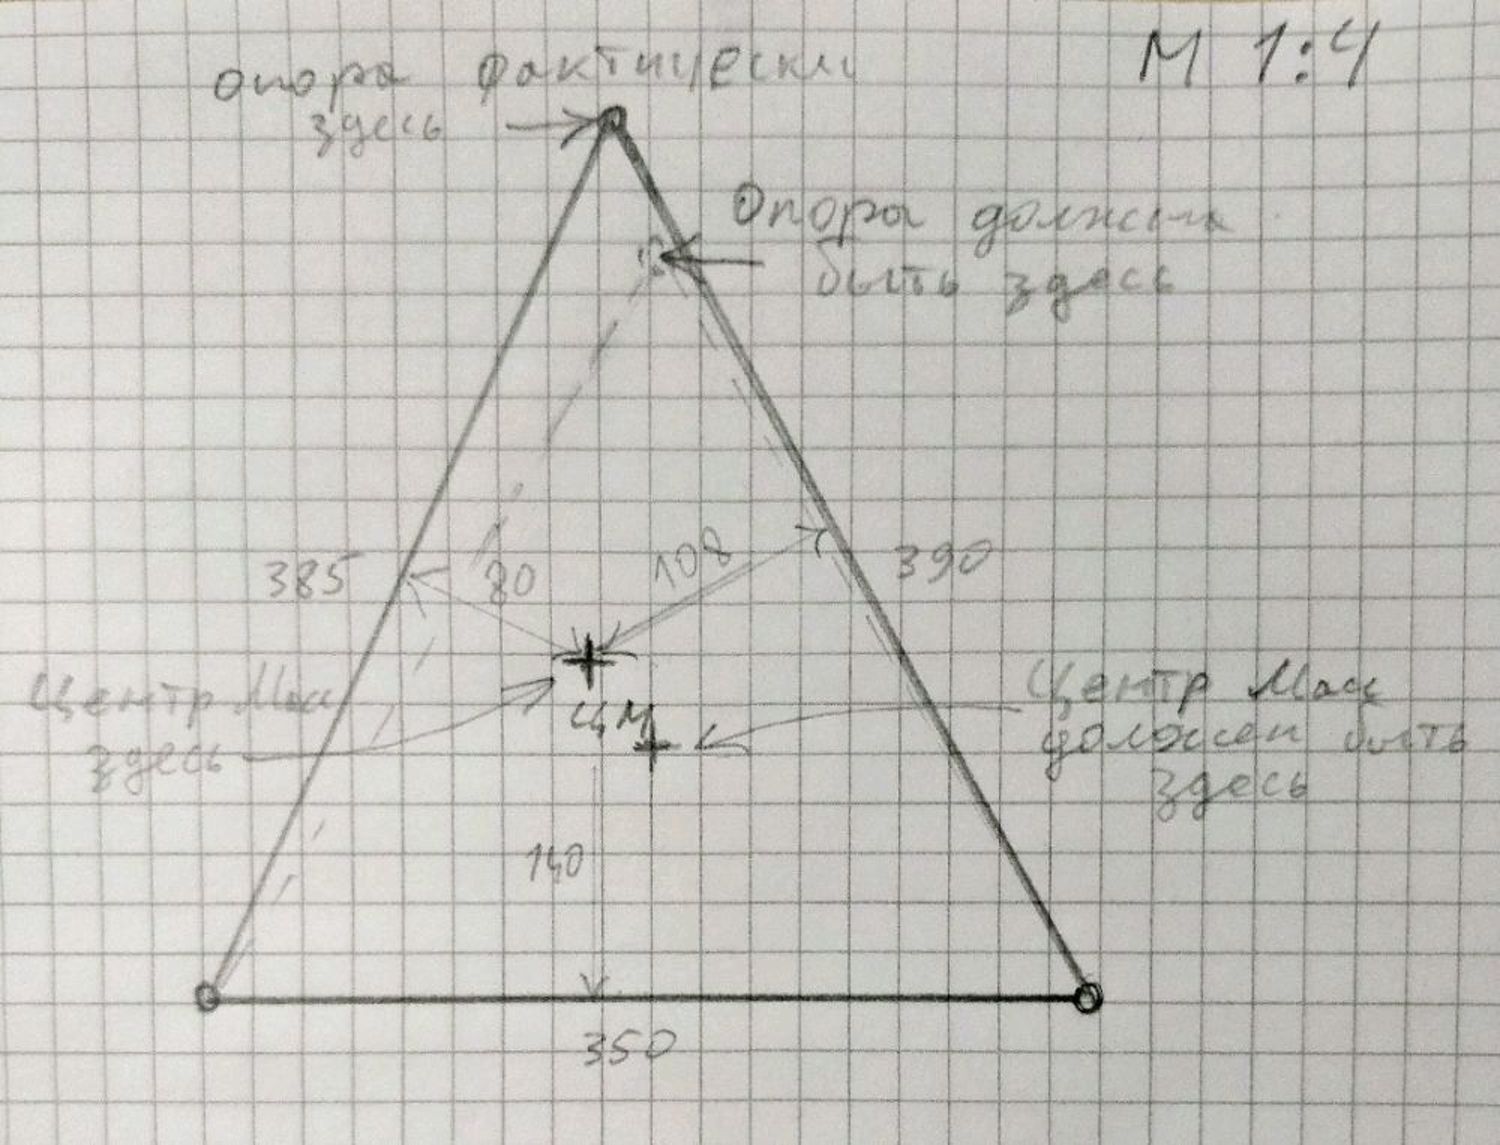 М 1:4
опора фактически
здесь
Опора должна
быть здесь
385
80
108
390
Центр Масс
здесь
ЦМ
Центр Масс
должен быть
здесь
140
350